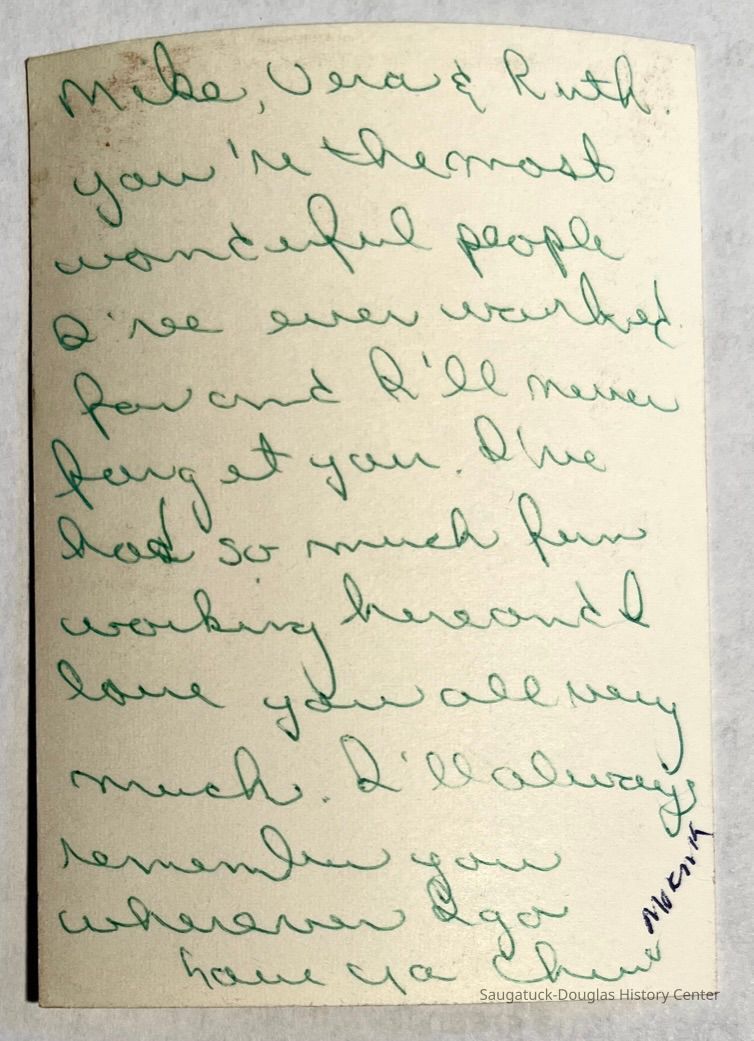 Mike, Vera & Ruth.
you're the most
wonderful people
I've ever worked
for and I'll never
forget you. I've
had so much fun
working here and I
love you all very
much. I'll always
remember you
wherever I go
Love ya
Saugatuck-Douglas History Center